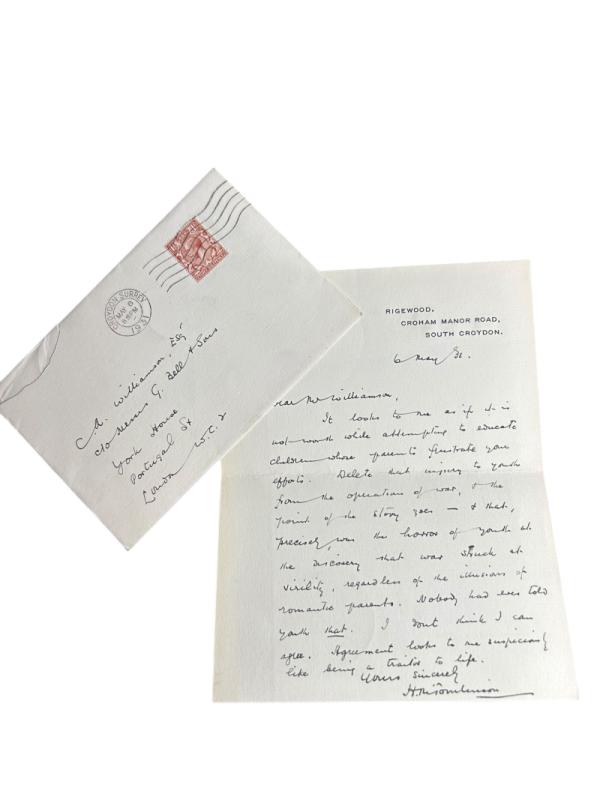 CROYDON. SURREY
MAY 6
8:15PM
1931
C.A. Williamson, Esq
c/o Messrs G. Bell & Sons
York House
Portugal St
London W.C.2
RIGEWOOD,
CROHAM MANOR ROAD,
SOUTH CROYDON.
6 May 31.
Dear Mr Williamson,
It looks to me as if it is
not worth while attempting to educate
children whose parents frustrate your
efforts. Delete that injury to youth
from the operation of war, & the
point of the story goes — & that,
precisely, was the horror of youth at
the discovery that war struck at
virility, regardless of the illusions of
romantic parents. Nobody had ever told
youth that. I don't think I can
agree. Agreement looks to me suspiciously
like being a traitor to life.
Yours sincerely
H.M. Tomlinson